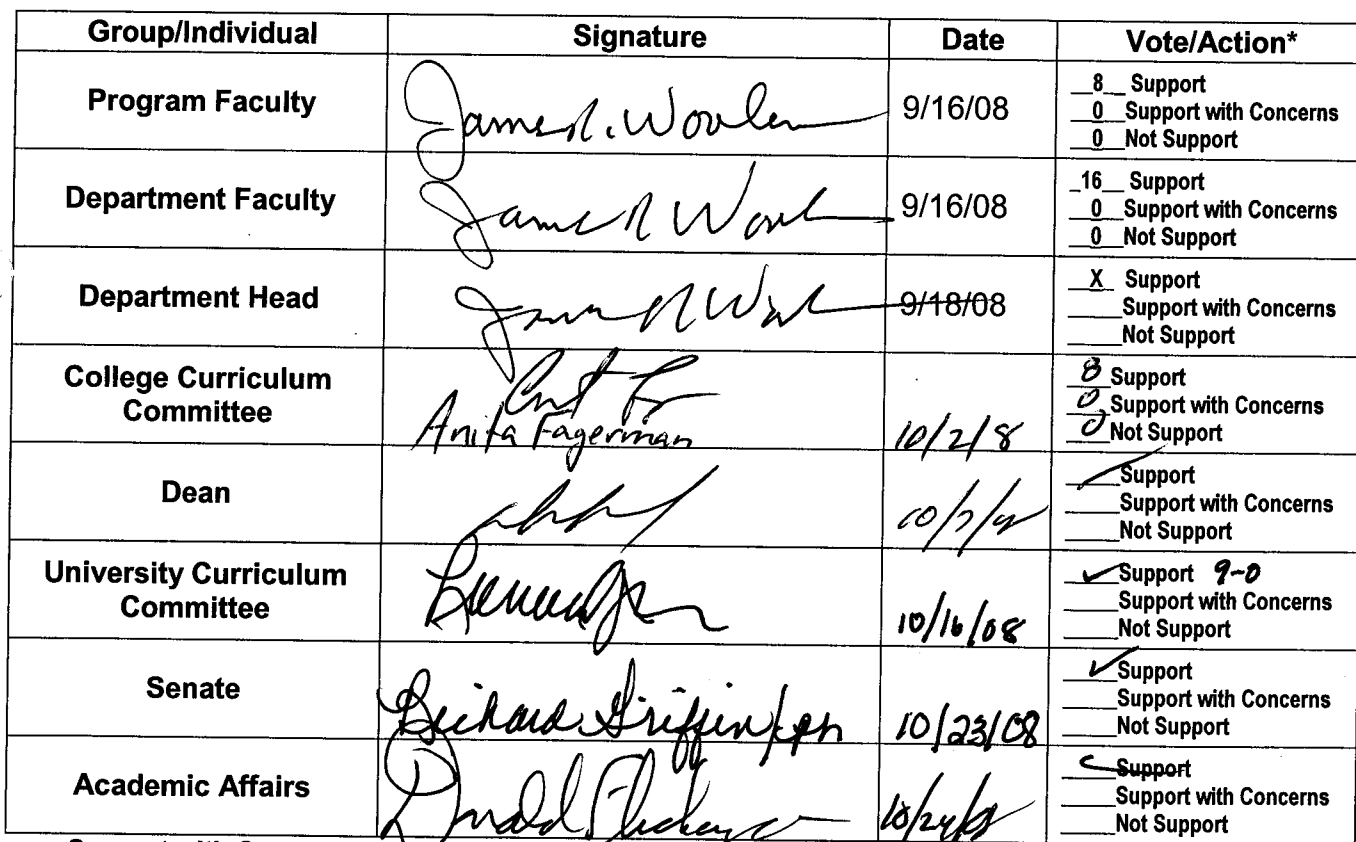 Group/Individual Signature Date Vote/Action*
Program Faculty James R. Woolen 9/16/08
8 Support
0 Support with Concerns
0 Not Support
Department Faculty James R 9/16/08
16 Support
0 Support with Concerns
0 Not Support
Department Head 9/18/08
X Support
Support with Concerns
Not Support
College Curriculum
Committee
Anita Fagerman 10/2/8
8 Support
0 Support with Concerns
0 Not Support
Dean
Support
Support with Concerns
Not Support
University Curriculum
Committee
10/16/08
✓ Support 9-0
Support with Concerns
Not Support
Senate Richard Griffin 10/23/08
✓ Support
Support with Concerns
Not Support
Academic Affairs Donald 10/24/08
Support
Support with Concerns
Not Support